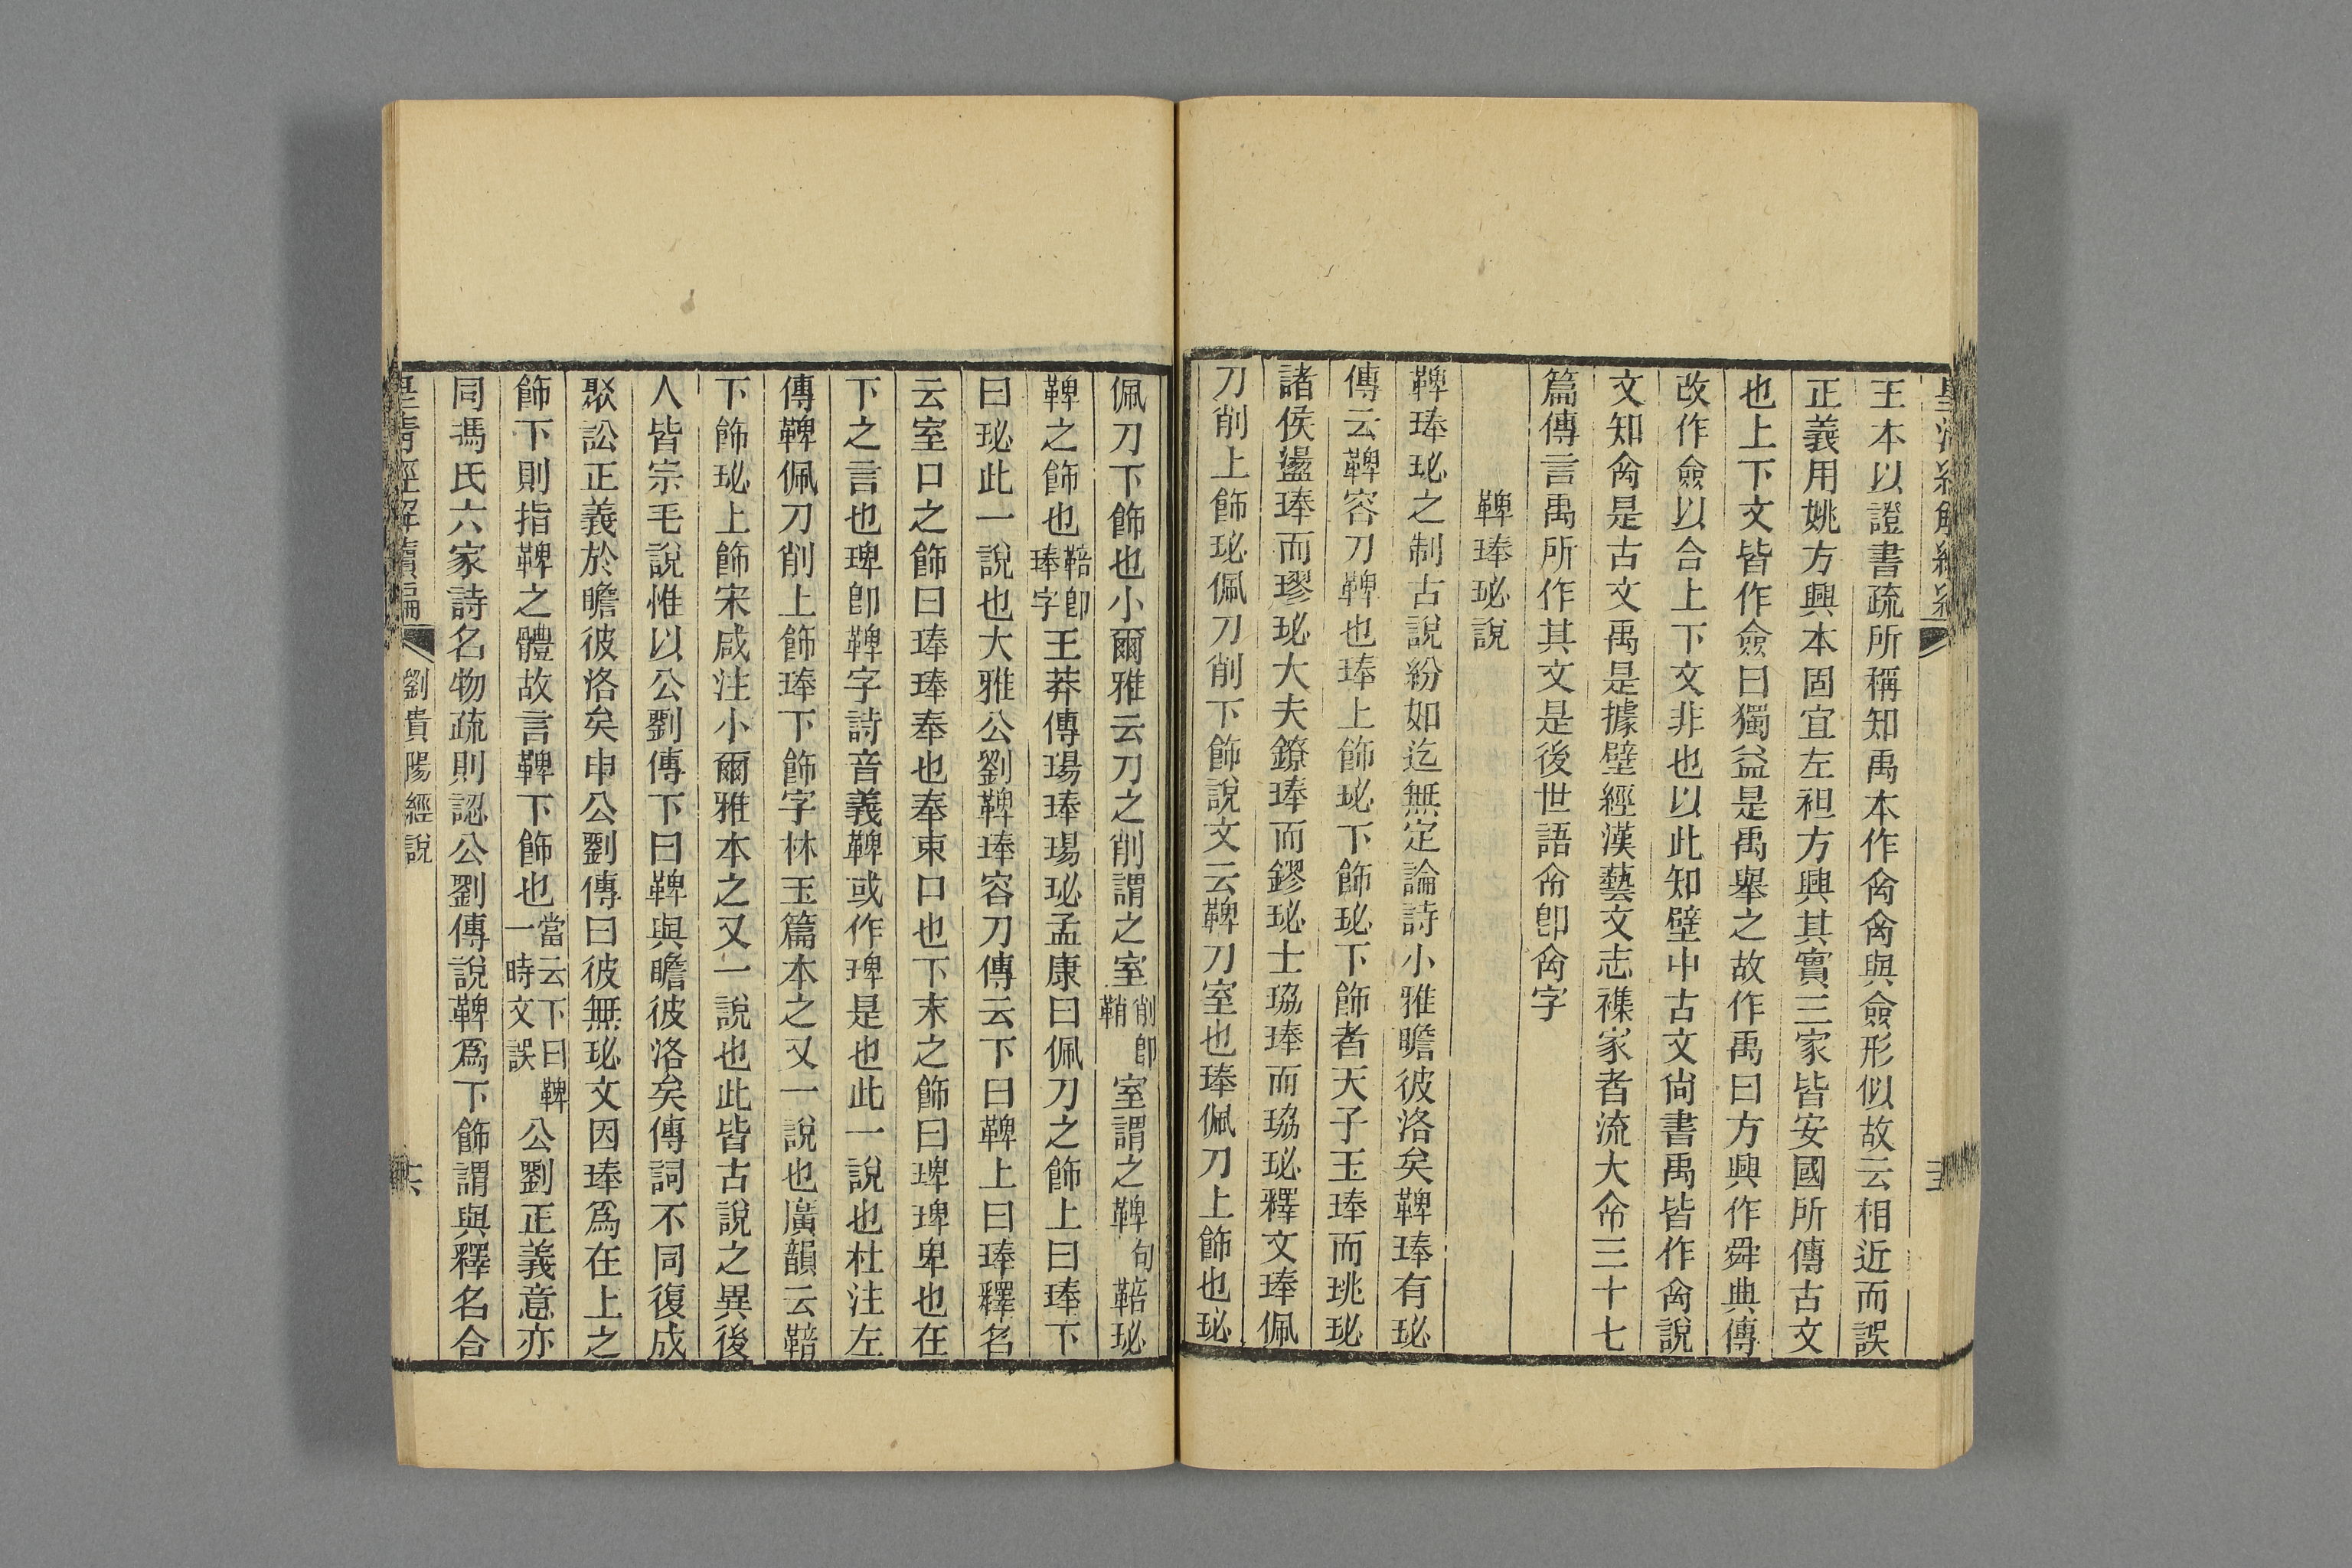 王本以證書疏所稱知禹本作龠龠與僉形似故云相近而誤
正義用姚方興本固宜左袒方興其實三家皆安國所傳古文
也上下文皆作僉曰獨益是禹舉之故作禹曰方興作舜典傳
改作僉以合上下文非也以此知壁中古文尙書禹皆作龠說
文知龠是古文禹是據壁經漢藝文志襍家者流大命三十七
篇傳言禹所作其文是後世語命卽龠字
鞞琫珌說
鞞琫珌之制古說紛如迄無定論詩小雅瞻彼洛矣鞞琫有珌
傳云鞞容刀鞞也琫上飾珌下飾珌下飾者天子玉琫而珧珌
諸侯璗琫而璆珌大夫鐐琫而鏐珌士珕琫而珕珌釋文琫佩
刀削上飾珌佩刀削下飾說文云鞞刀室也琫佩刀上飾也珌
佩刀下飾也小爾雅云刀之削謂之室削卽鞘室謂之鞞句鞛珌
鞞之飾也鞛卽琫字王莽傳瑒琫瑒珌孟康曰佩刀之飾上曰琫下
曰珌此一說也大雅公劉鞞琫容刀傳云下曰鞞上曰琫釋名
云室口之飾曰琫琫奉也奉束口也下末之飾曰琕琕卑也在
下之言也琕卽鞞字詩音義鞞或作琕是也此一說也杜注左
傳鞞佩刀削上飾琫下飾字林玉篇本之又一說也廣韻云鞛
下飾珌上飾宋咸注小爾雅本之又一說也此皆古說之異後
人皆宗毛說惟以公劉傳下曰鞞與瞻彼洛矣傳詞不同復成
聚訟正義於瞻彼洛矣申公劉傳曰彼無珌文因琫爲在上之
飾下則指鞞之體故言鞞下飾也當云下曰鞞一時文誤公劉正義意亦
同馮氏六家詩名物疏則認公劉傳說鞞爲下飾謂與釋名合
皇淸經解續編
劉貴陽經說
六